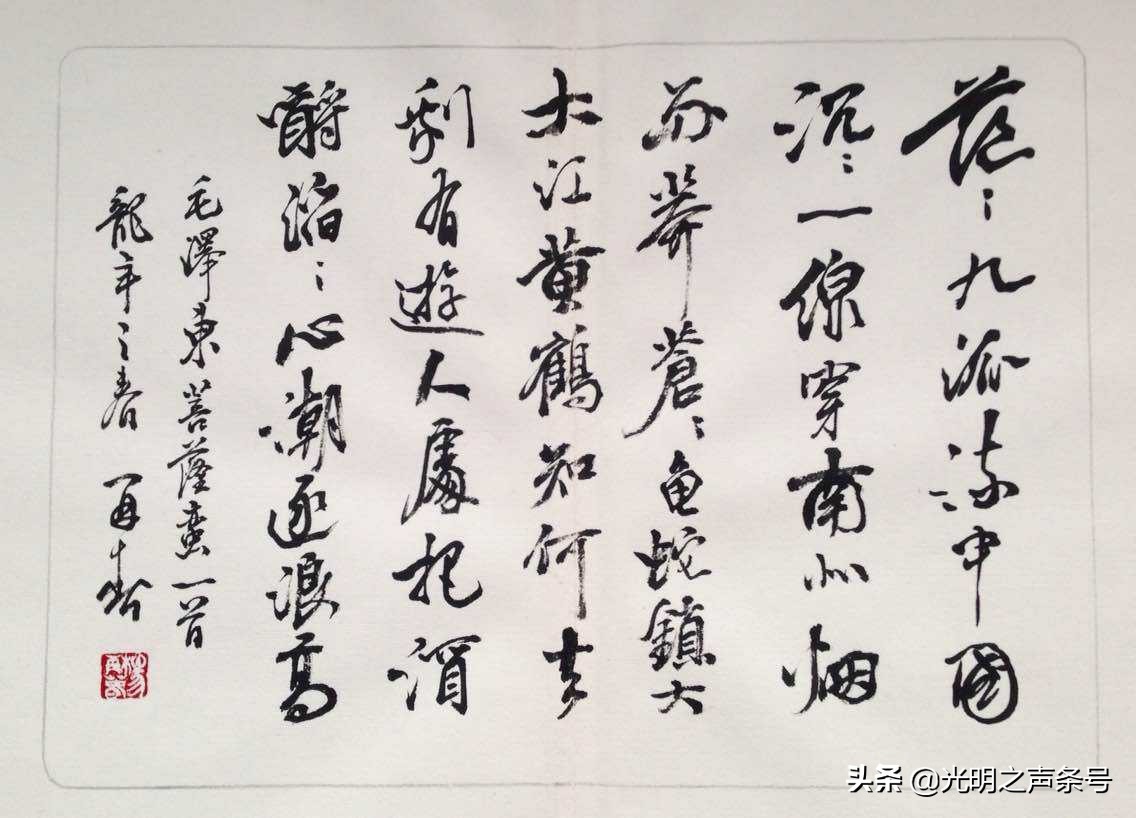 茫〻九派流中國
沉〻一線穿南北烟
雨莽蒼〻龟蛇鎖大
江黄鶴知何去
剩有遊人處把酒
酹滔〻心潮逐浪高
毛澤東菩薩蠻一首
龍年之春 再春
头条 @光明之声条号